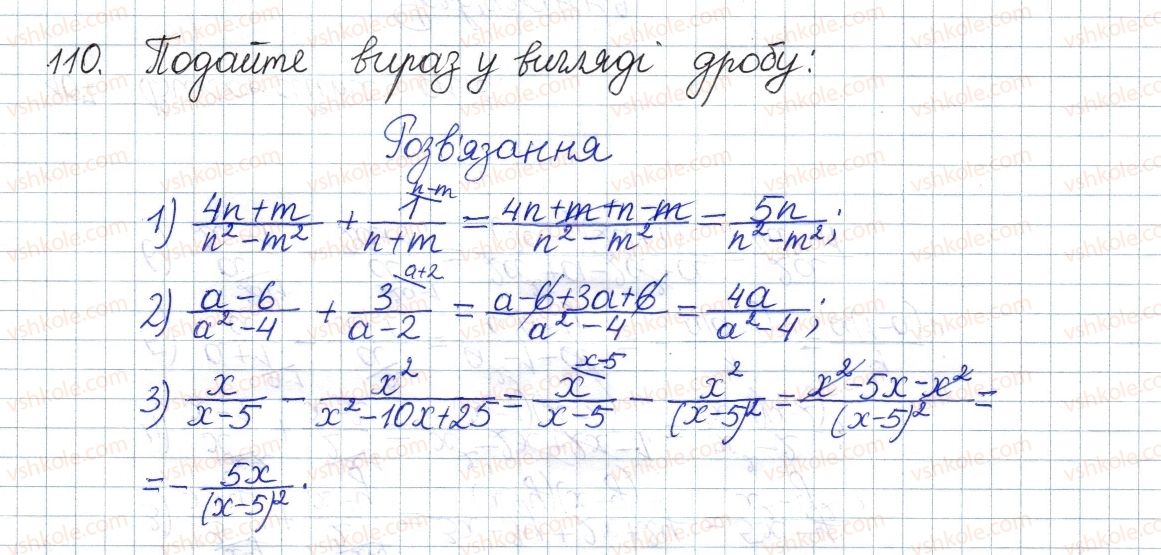 110. Подайте вираз у вигляді дробу:
Розв'язання
1) (4n+m)/(n²-m²) + 1/(n+m) ^(n-m) = (4n+m+n-m)/(n²-m²) = 5n/(n²-m²);
2) (a-6)/(a²-4) + 3/(a-2) ^(a+2) = (a-6+3a+6)/(a²-4) = 4a/(a²-4);
3) x/(x-5) - x²/(x²-10x+25) = x/(x-5) ^(x-5) - x²/(x-5)² = (x²-5x-x²)/(x-5)² =
= - 5x/(x-5)².
vshkole.com